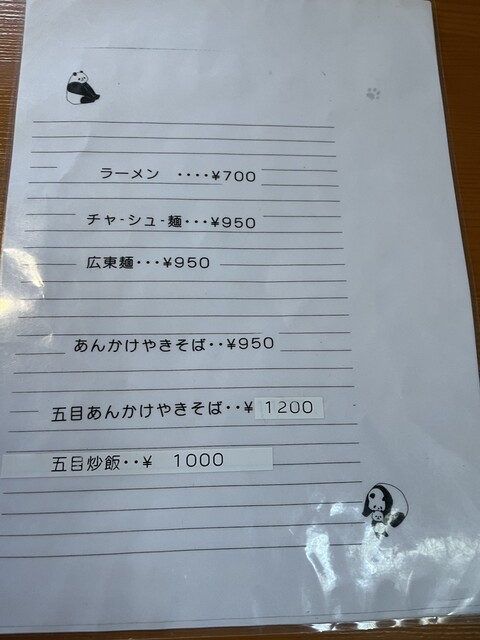 ラーメン ････¥700
チャ-シュ-麺･･･¥950
広東麺･･･¥950
あんかけやきそば･･¥950
五目あんかけやきそば･･¥ 1200
五目炒飯･･¥ 1000